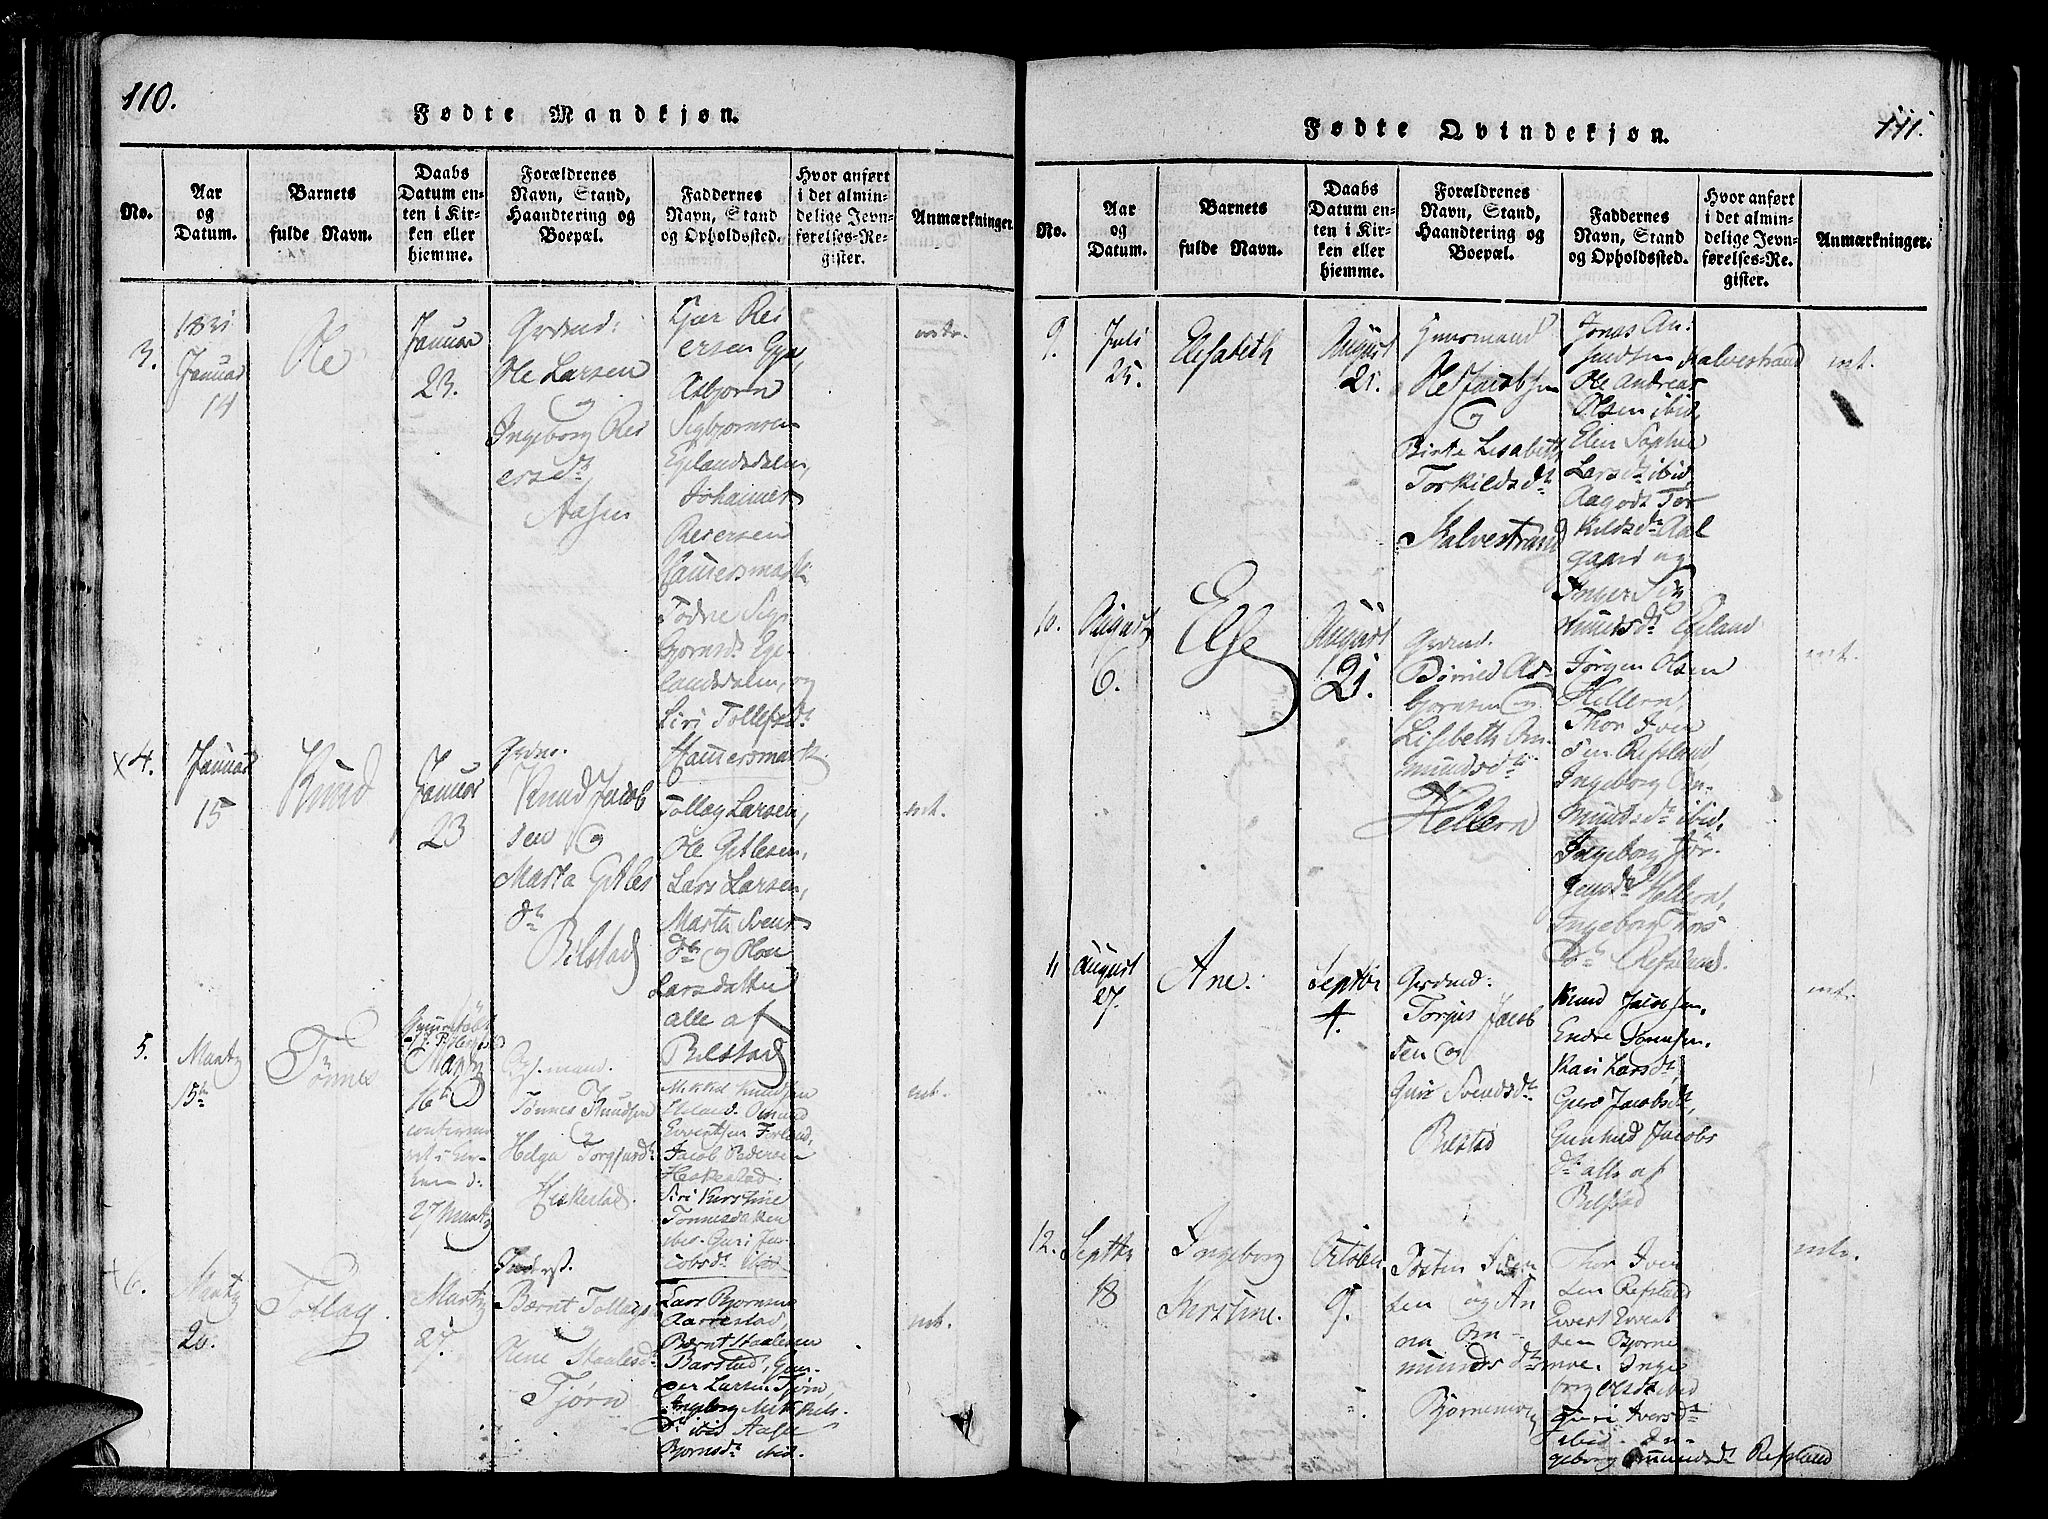 110.
Fødte Mandkjøn.
No.
Aar
og
Datum.
Barnets
fulde Navn.
Daabs
Datum en-
ten i Kir-
ken eller
hjemme.
Forældrenes
Navn, Stand,
Haandtering og
Boepæl.
Faddernes
Navn, Stand
og Opholdssted.
Hvor anført
i det almin-
delige Jevn-
førelses-Re-
gister.
Anmærkninger.
3.
1831
Januar
14
Ole
Januar
23.
Grdmd:
Ole Larsen
og
Ingeborg Rei
ersdt
Aasen
Rei
ersen Eya,
Asbjørn
Sigbjørnsen
Egelandsdalen,
Johannes
Reiersen
Hauersmark
Todne Sig-
bjørnsdt Ege-
landsdalen, og
Siri Tollefsdt
Hauersmark
x 4.
Januar
15
Knud
Januar
23
Grdm.
Knud Jacob
sen og
Marta Gitles
dt
Bilstad
Tollag Larsen,
Ole Gitlesen,
Lars Larsen,
Marta Svens-
dt og
Larsdatter
alle af
Bilstad
mt.
5.
Martz
15de
Tønnes
Martz
16de
ret i Kir-
ken d.
27 Martz
Tønnes Knudsen
Helga Torgjusdt
Heskestad.
Knudsen
Omund
Evertsen
Jacob Pedersen
Heskestad.
Siri Kirstine
Tønnesdatter
ibid. Guri Ja-
cobsdt ibid
mt.
x 6.
Martz
20.
Tollag
Martz
27.
Inderst.
Bærnt Tollags
og
Olene Staalesdt
Tjørn
Lars Bjørnsen
Aarrestad,
Bærnt Staalesen
Barstad, Gun-
der Larsen Tjørn,
Ingeborg
dt ibid Aase
Bjørnsdt ibid.
mt.
111.
Fødte Qvindekjøn.
No.
Aar
og
Datum.
Barnets
fulde Navn.
Daabs
Datum en-
ten i Kir-
ken eller
hjemme.
Forældrenes
Navn, Stand,
Haandtering og
Boepæl.
Faddernes
Navn, Stand
og Opholdssted.
Hvor anført
i det almin-
delige Jevn-
førelses-Re-
gister.
Anmærkninger.
9.
Juli
25.
Elisabeth
August
21.
Huusmand
Ole Jacobsen
og
Birte Lisabeth
Torkildsdt
Kalvestrand
Jonas An-
Kalvestrand
Ole Andreas
Olsen ibid,
Elen Sophie
Larsdt ibid,
Aagodt Tor
kildsdt Aal
gaard og
Inger Si
mundsdt Egeland
mt.
10.
August
6.
Else
August
21.
Grdmd.
Omund As-
bjørnsen og
Lisebeth Om-
mundsdt
Hellern
Jørgen Olsen
Hellern,
Thor Iver
sen Refsland,
Ingeborg Om-
mundsdt ibid,
Ingeborg Jør-
gensdt Hellern,
Ingeborg Thors
dt Refsland.
mt.
11
August
27.
Ane.
Septbr
4.
Grdmd:
Torjus Jacob
sen og
Guri Svendsdt
Bilstad
Knud Jacobsen,
Endre Tønnesen,
Kari Larsdt,
Guri Jacobsdt,
Gunhild Jacobs
dt alle af
Bilstad
mt.
12.
Septbr
18
Ingeborg
Kirstine.
October
9.
Josten Iver
sen og An
na Om-
mundsdt
Bjørnemoe
Thor Iver
sen Refsland
Evert Evert
sen Bjørne
moe. Inge
borg Olsdt ibid
Guri Iversdt
ibid. In-
geborg Omundsdt Refsland
mt.